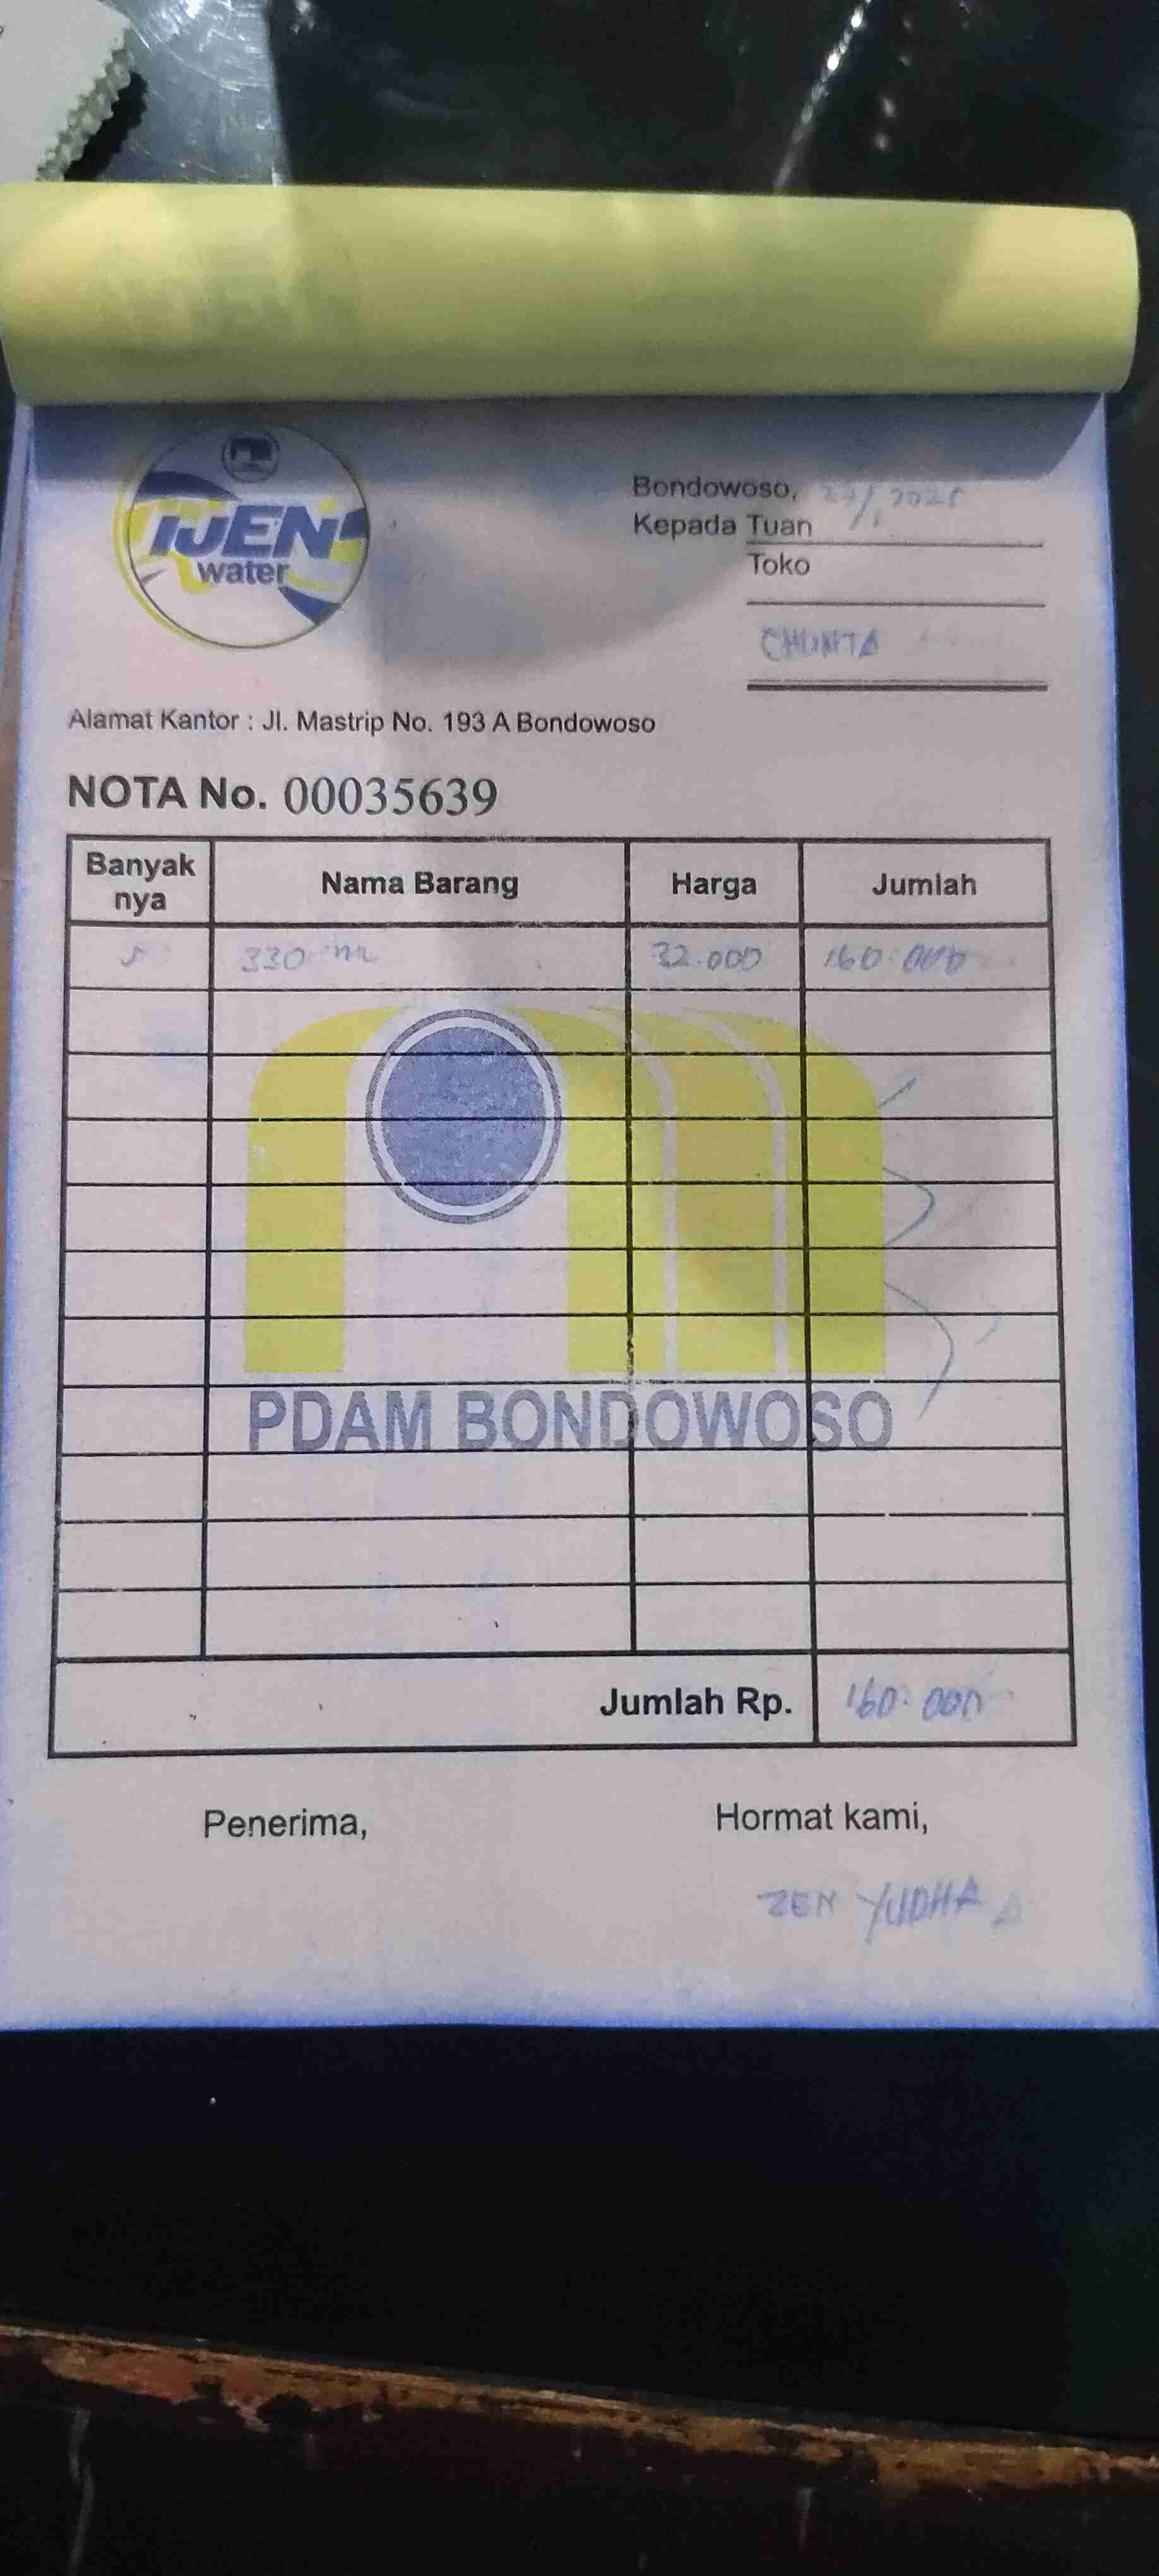 IJEN
water
Bondowoso, 27/1 2025
Kepada Tuan
Toko
CHUNTA
Alamat Kantor : Jl. Mastrip No. 193 A Bondowoso
NOTA No. 00035639
Banyak nya Nama Barang Harga Jumlah
5 330 ml 32.000 160.000
PDAM BONDOWOSO
Jumlah Rp. 160.000
Penerima, Hormat kami,
ZEN YUDHA